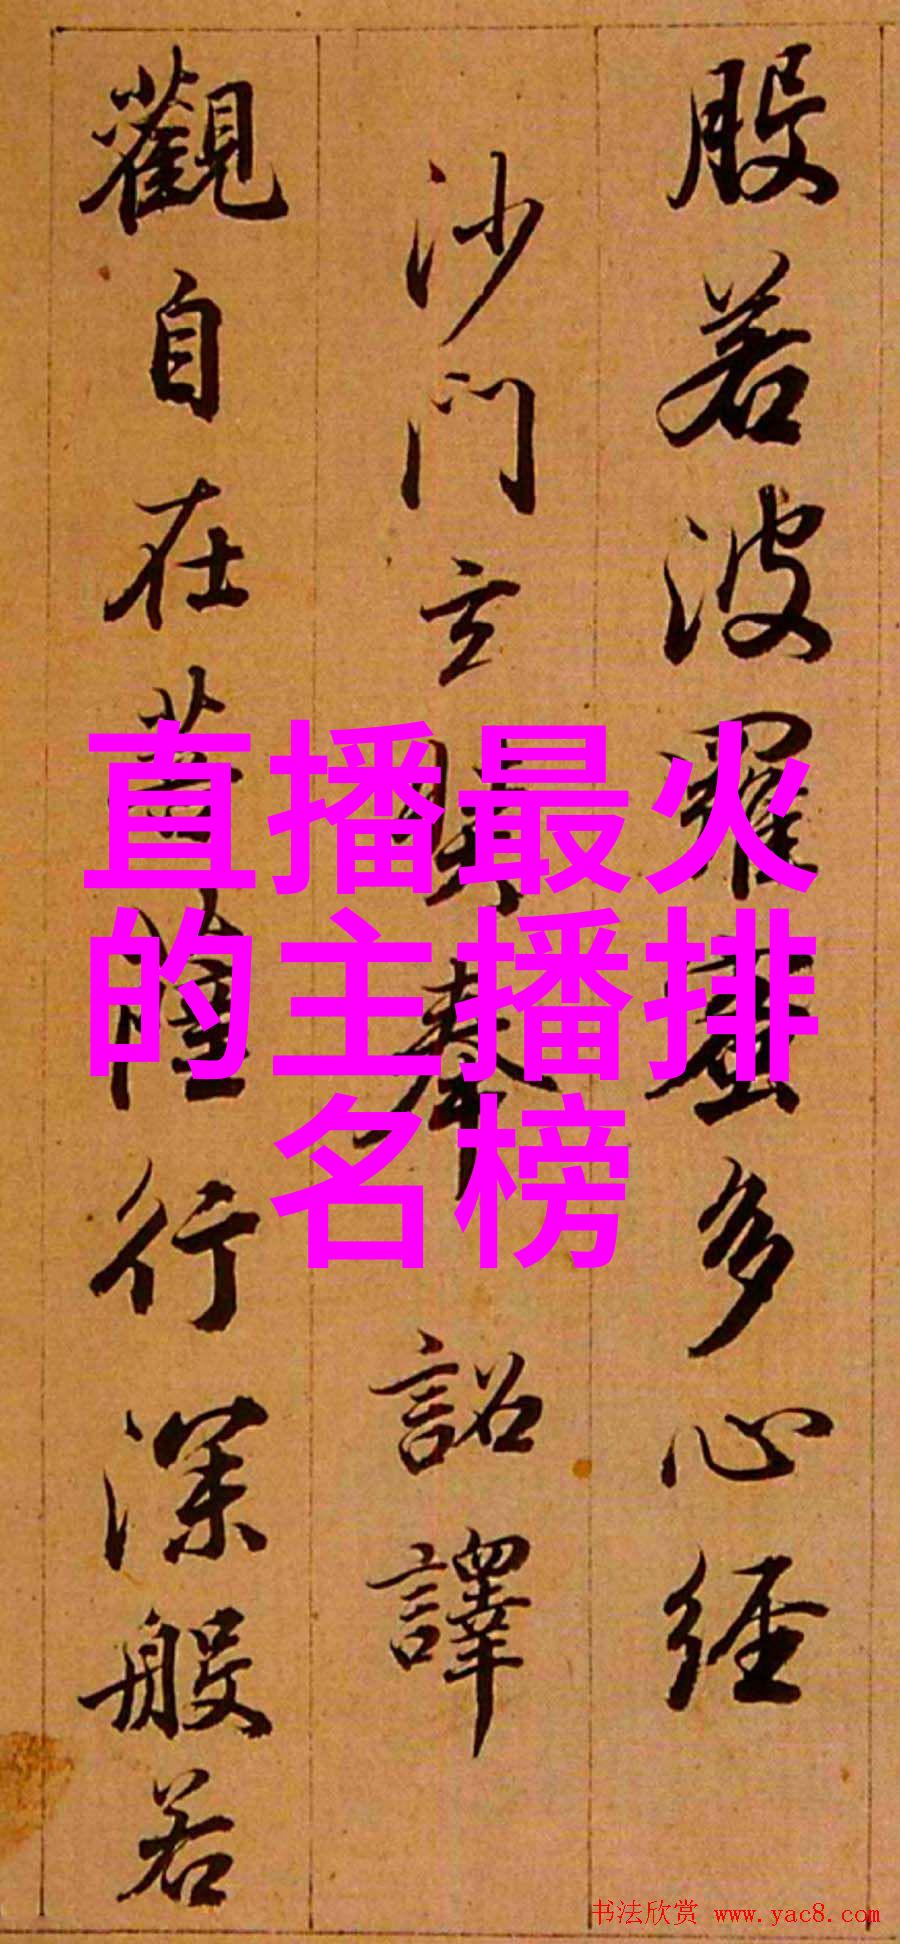 般若波羅蜜多心経
沙門玄奘奉 詔譯
觀自在菩薩行深般若
直播最火
的主播排
名榜
书法欣赏 www.yac8.com